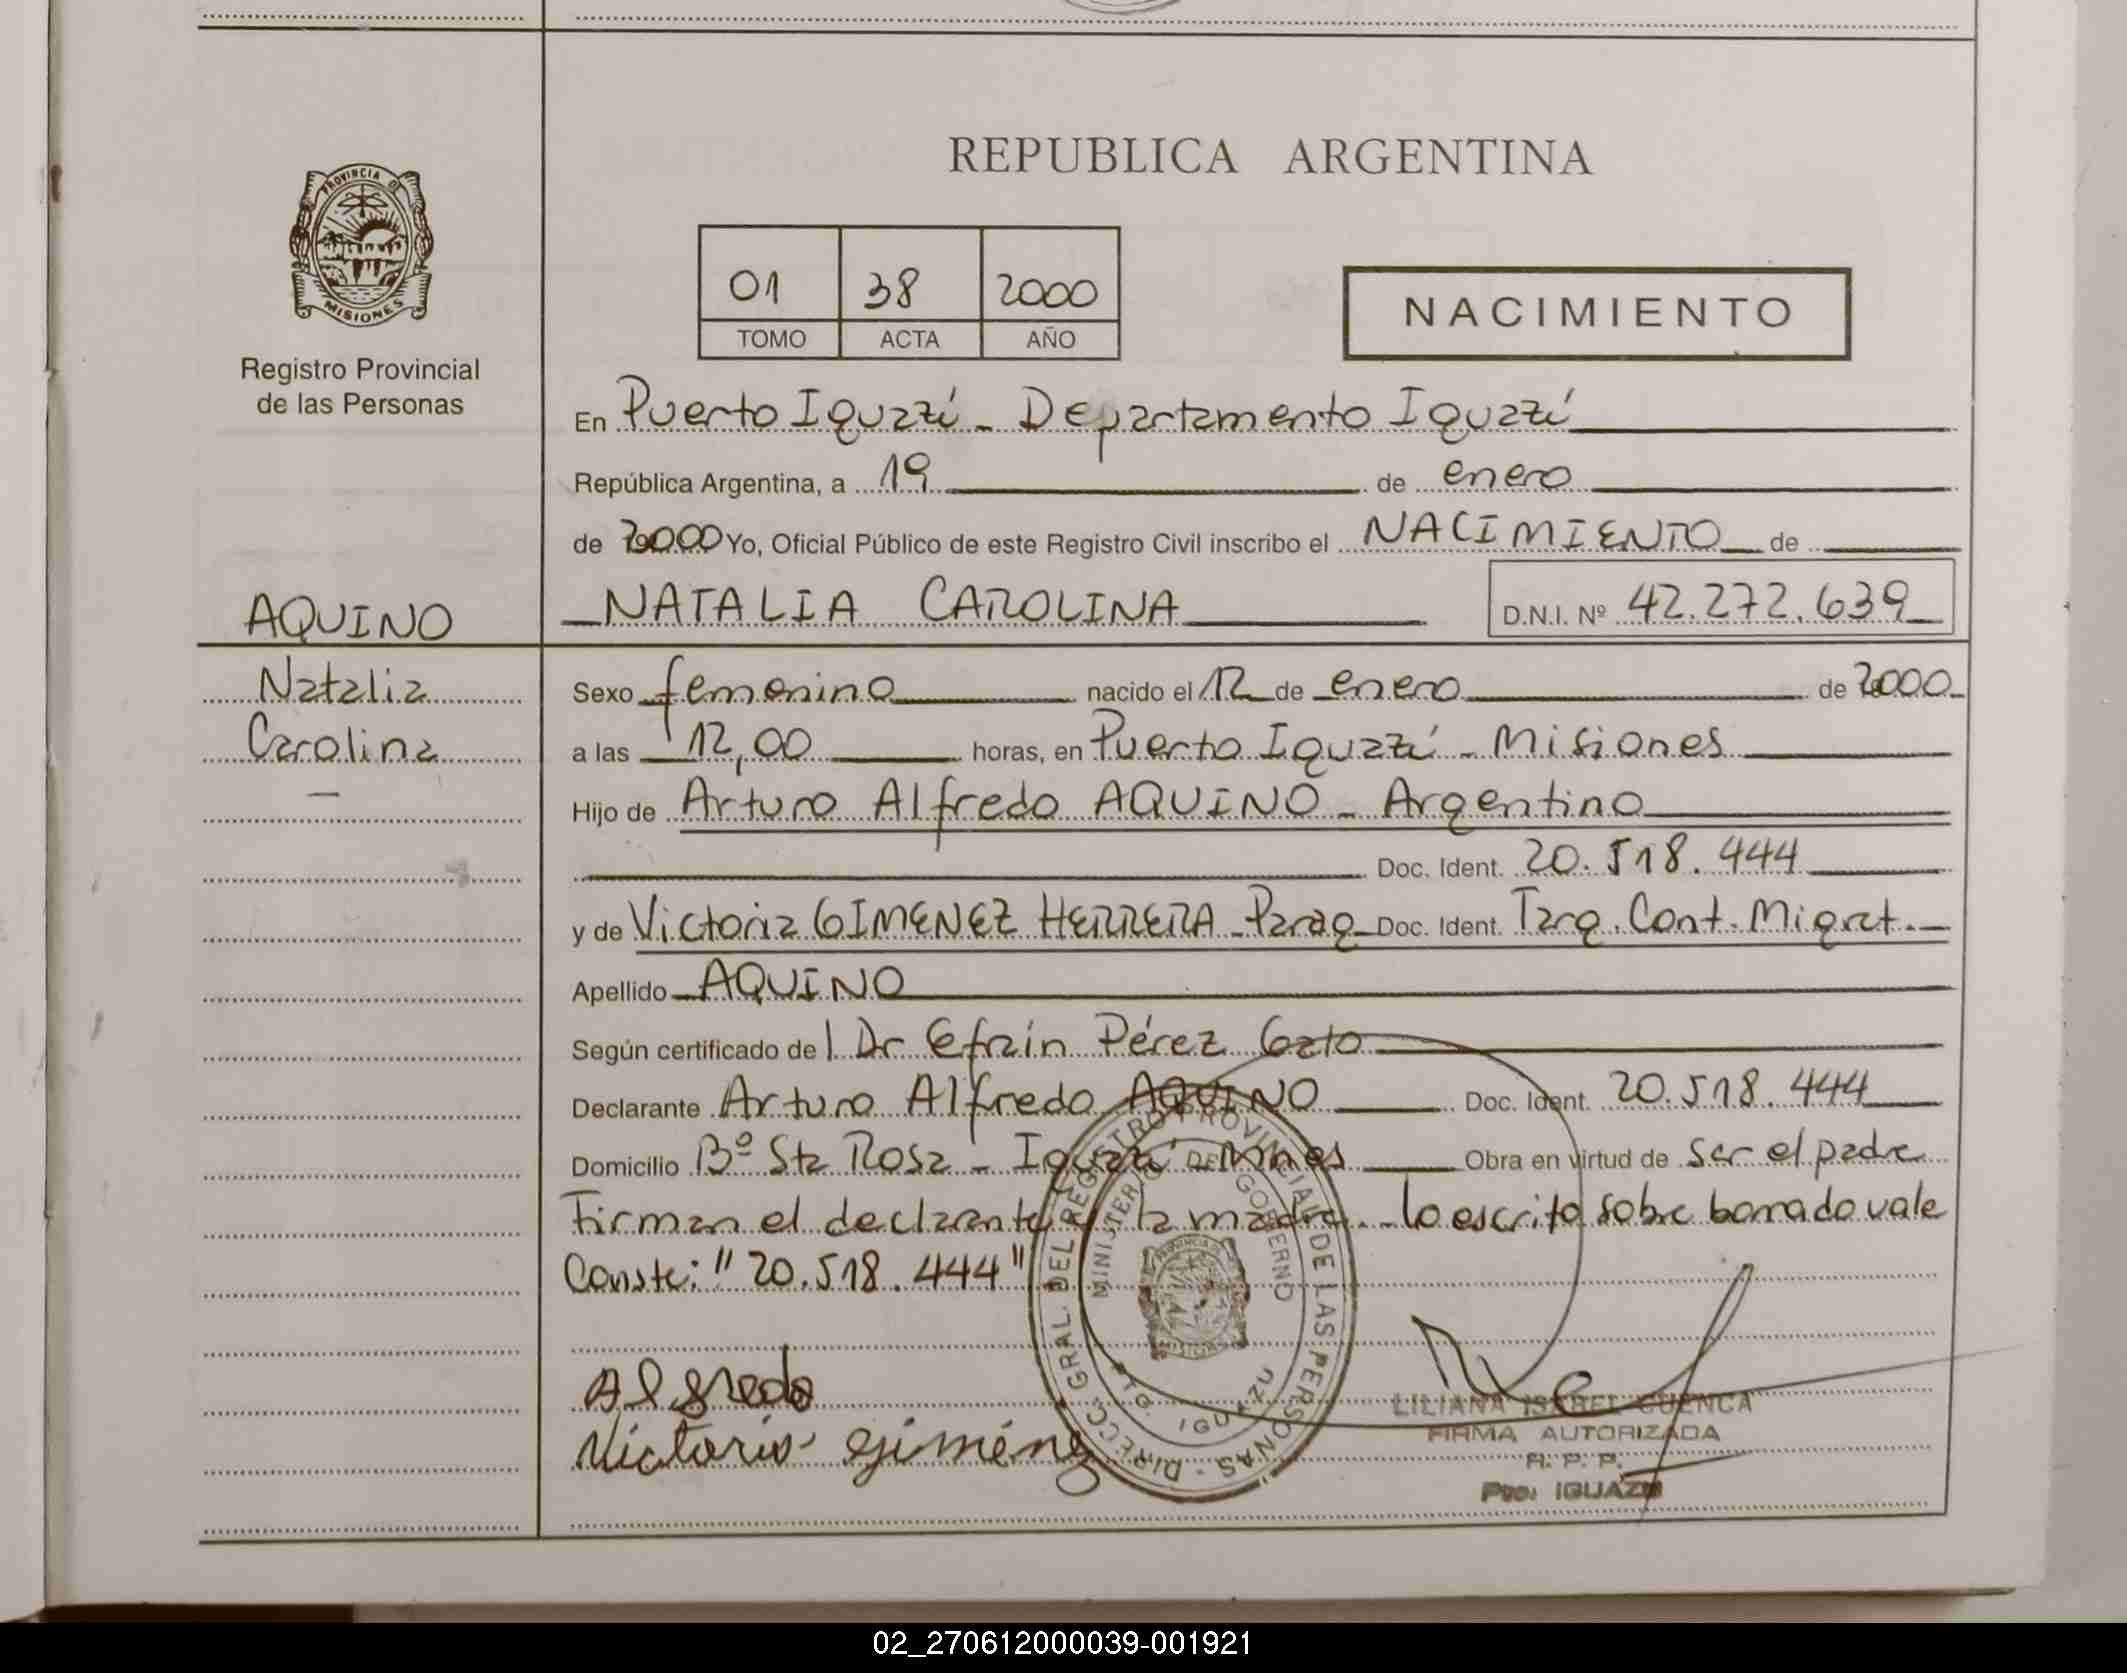 REPUBLICA ARGENTINA
PROVINCIA DE
MISIONES
Registro Provincial
de las Personas
01 38 2000
TOMO ACTA AÑO
NACIMIENTO
En Puerto Iguazú - Departamento Iguazú
República Argentina, a 19 de enero
de 2000 Yo, Oficial Público de este Registro Civil inscribo el NACIMIENTO de
AQUINO
NATALIA CAROLINA D.N.I. Nº 42.272.639
Natalia
Carolina
Sexo femenino nacido el 12 de enero de 2000
a las 12,00 horas, en Puerto Iguazú - Misiones
Hijo de Arturo Alfredo AQUINO - Argentino
Doc. Ident. 20.518.444
y de Victoria GIMENEZ HERRERA - Parag Doc. Ident. Tarq. Cont. Migrat.
Apellido AQUINO
Según certificado del Dr Efraín Pérez Gato
Declarante Arturo Alfredo AQUINO Doc. Ident. 20.518.444
Domicilio Bº Sta Rosa - Iguazú Mnes Obra en virtud de ser el padre
Firman el declarante y la madre.- lo escrito sobre borrado vale
Conste: "20.518.444"
DIRECC. GRAL. DEL REGISTRO PROVINCIAL DE LAS PERSONAS -
MINISTERIO DE GOBIERNO
PTO. IGUAZU
PROVINCIA DE
MISIONES
Alfredo
Victoria giménez
LILIANA ISABEL CUENCA
FIRMA AUTORIZADA
R. P. P.
Pto. IGUAZU
02_270612000039-001921